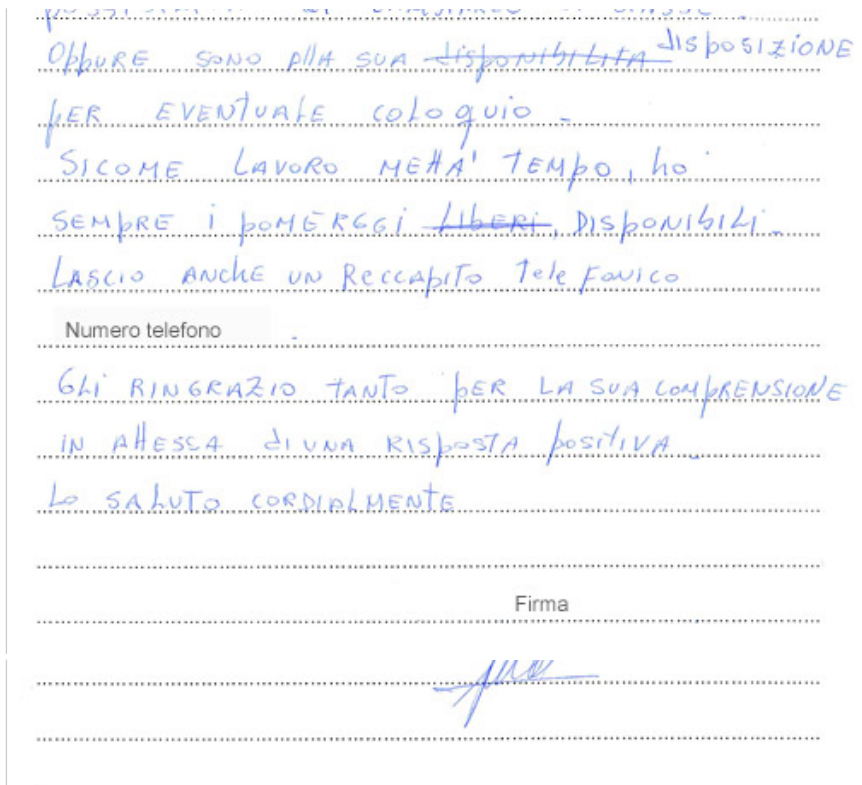 Oppure sono alla sua disponibilità disposizione
per eventuale coloquio.
Sicome lavoro mettà tempo, ho
sempre i pomerggi liberi, disponibili.
Lascio anche un reccapito telefonico
Numero telefono .
Gli ringrazio tanto per la sua comprensione
in attessa di una risposta positiva.
Lo saluto cordialmente
Firma